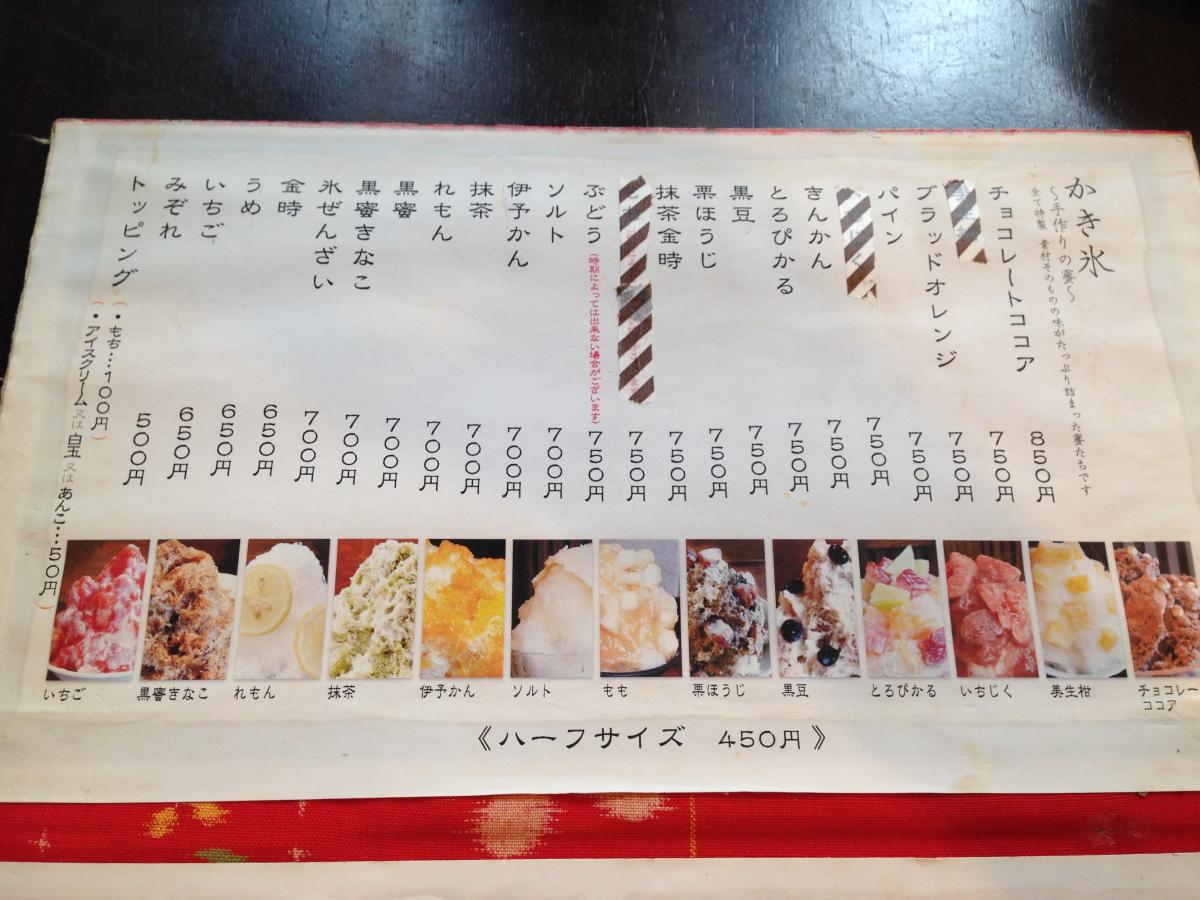 かき氷
～手作りの蜜～
全て特製 素材そのものの味がたっぷり詰まった蜜たちです
チョコレートココア 850円
750円
ブラッドオレンジ 750円
パイン 750円
く 750円
きんかん 750円
とろぴかる 750円
黒豆 750円
栗ほうじ 750円
抹茶金時 750円
750円
ぶどう (時期によっては出来ない場合がございます) 750円
ソルト 700円
伊予かん 700円
抹茶 700円
れもん 700円
黒蜜 700円
黒蜜きなこ 700円
氷ぜんざい 700円
金時 650円
うめ 650円
いちご 650円
みぞれ 500円
トッピング
(・もち…100円)
(・アイスクリーム又は白玉又はあんこ…50円)
いちご
黒蜜きなこ
れもん
抹茶
伊予かん
ソルト
もも
栗ほうじ
黒豆
とろぴかる
いちじく
美生柑
チョコレー
ココア
《ハーフサイズ 450円》